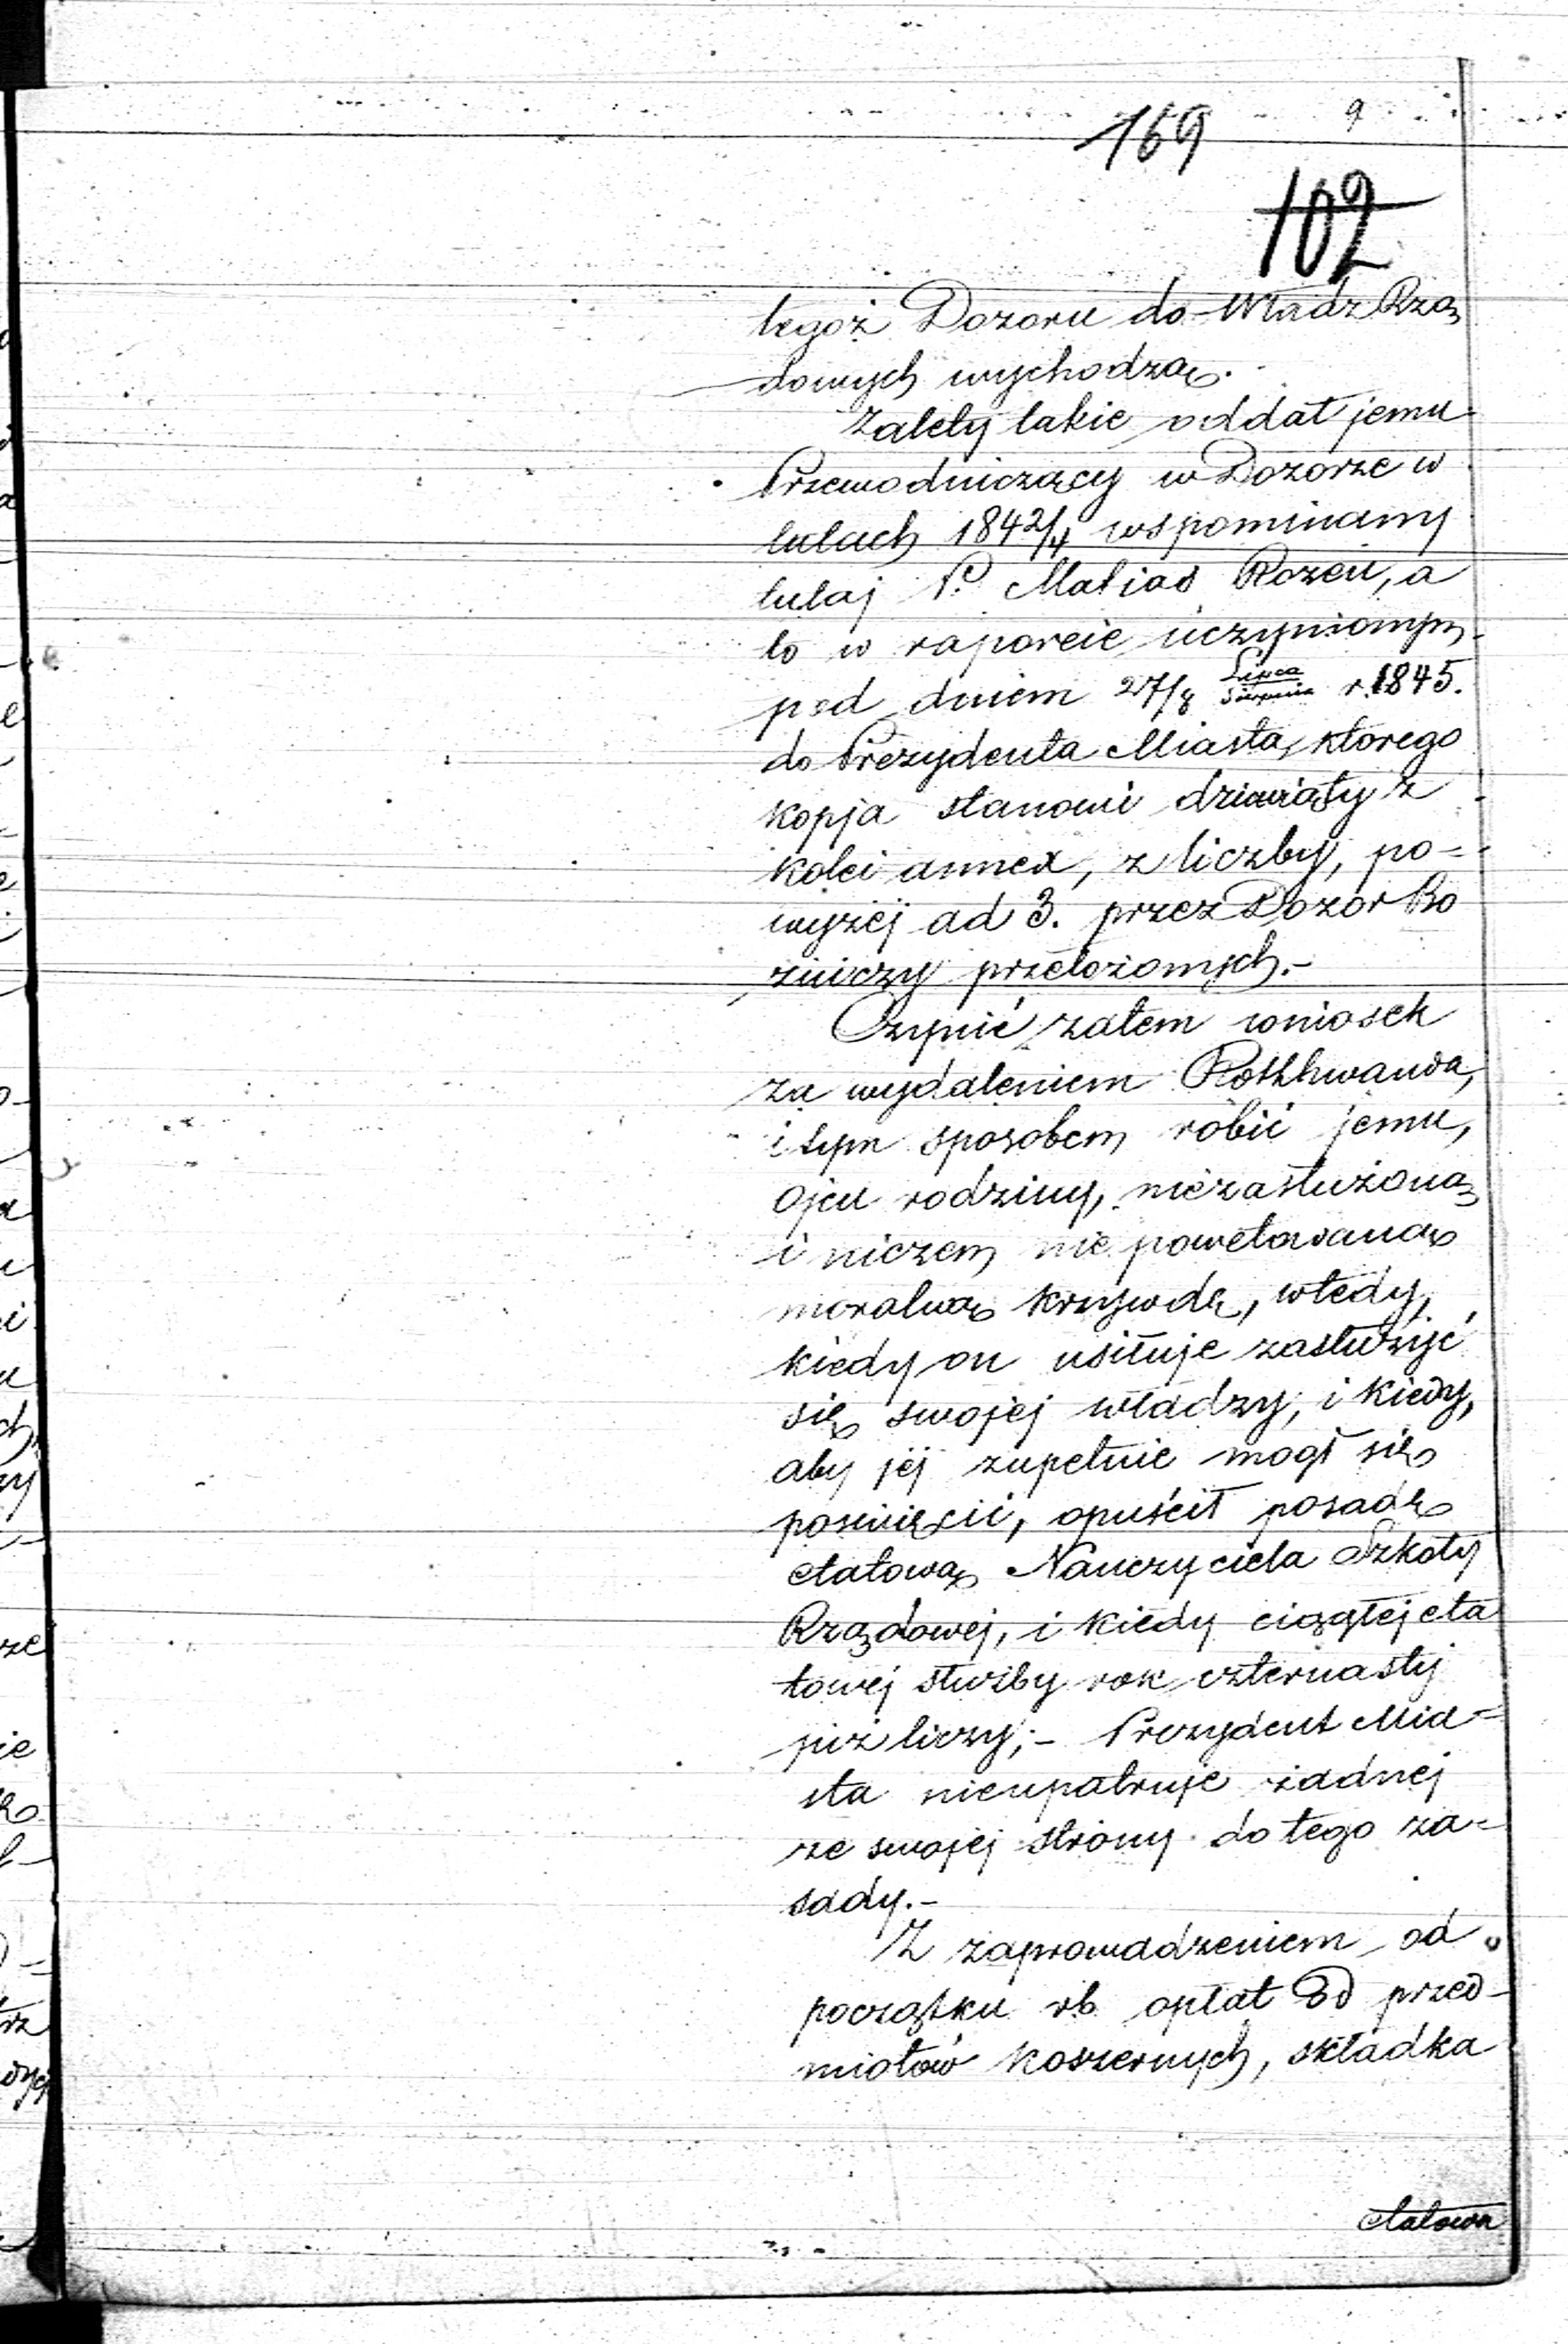 169
9
102
tegoż Dozoru do Władz Rzą
dowych wychodzą.
Zalety takie oddał jemu
Przewodniczący w Dozorze w
latach 1842/4 wspominany
tutaj P. Matias Rozen, a
to w raporcie uczynionym
pod dniem 27/8 Lipca/Sierpnia r. 1845.
do Prezydenta Miasta, którego
kopja stanowi dziewiąty z
kolei annex, z liczby, po=
wyżej ad 3. przez Dozór Bo
żniczy przełożonych.-
Czynić zatem wniosek
za wydaleniem
i tym sposobem robić jemu,
ojcu rodziny, niezasłużoną
i niczem nie powetowaną
moralną krzywdę, wtedy,
kiedy on usiłuje zasłużyć
się swojej władzy, i kiedy,
aby jej zupełnie mogł się
poświęcić, opuścił posadę
etatową Nauczyciela Szkoły
Rządowej, i kiedy ciągłej eta
towej służby rok czternasty
już liczy;- Prezydent Mia=
sta nieupatruje żadnej
ze swojej strony do tego za=
sady.-
Z zaprowadzeniem od
początku rb. opłat od przed-
miotów koszernych, składka
etatowa